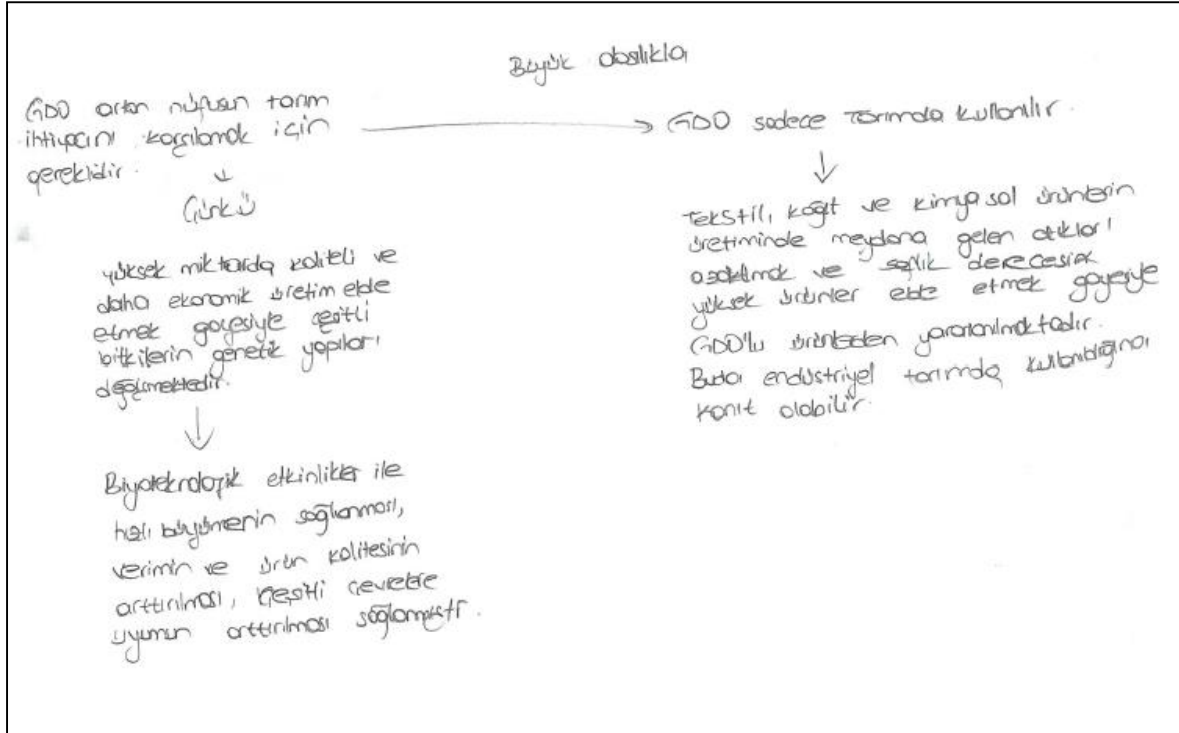 Büyük olasılıkla
GDO artan nüfusun tarım
ihtiyacını karşılamak için
gereklidir.
Çünkü
yüksek miktarda kaliteli ve
daha ekonomik üretim elde
etmek gayesiyle çeşitli
bitkilerin genetik yapıları
değişmektedir.
Biyoteknolojik etkinlikler ile
hızlı büyümenin sağlanması,
verimin ve ürün kalitesinin
arttırılması, çeşitli çevrelere
uyumun arttırılması sağlanmıştır.
GDO sadece tarımda kullanılır.
Tekstil, kağıt ve kimyasal ürünlerin
üretiminde meydana gelen atıkları
azaltmak ve saflık derecesi
yüksek ürünler elde etmek gayesiyle
GDO'lu ürünlerden yararlanılmaktadır.
Buda endüstriyel tarımda kullanıldığına
kanıt olabilir.